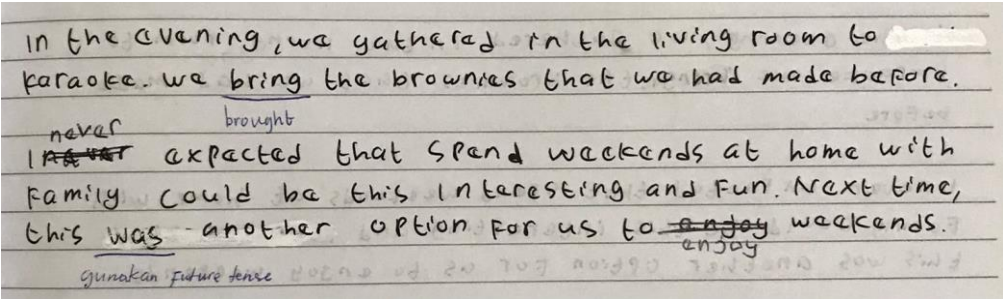 In the evening, we gathered in the living room to
karaoke. we bring the brownies that we had made before.
brought
never
I never expected that spend weekends at home with
Family could be this Interesting and Fun. Next time,
this was another option For us to enjoy weekends.
enjoy
gunakan Future tense